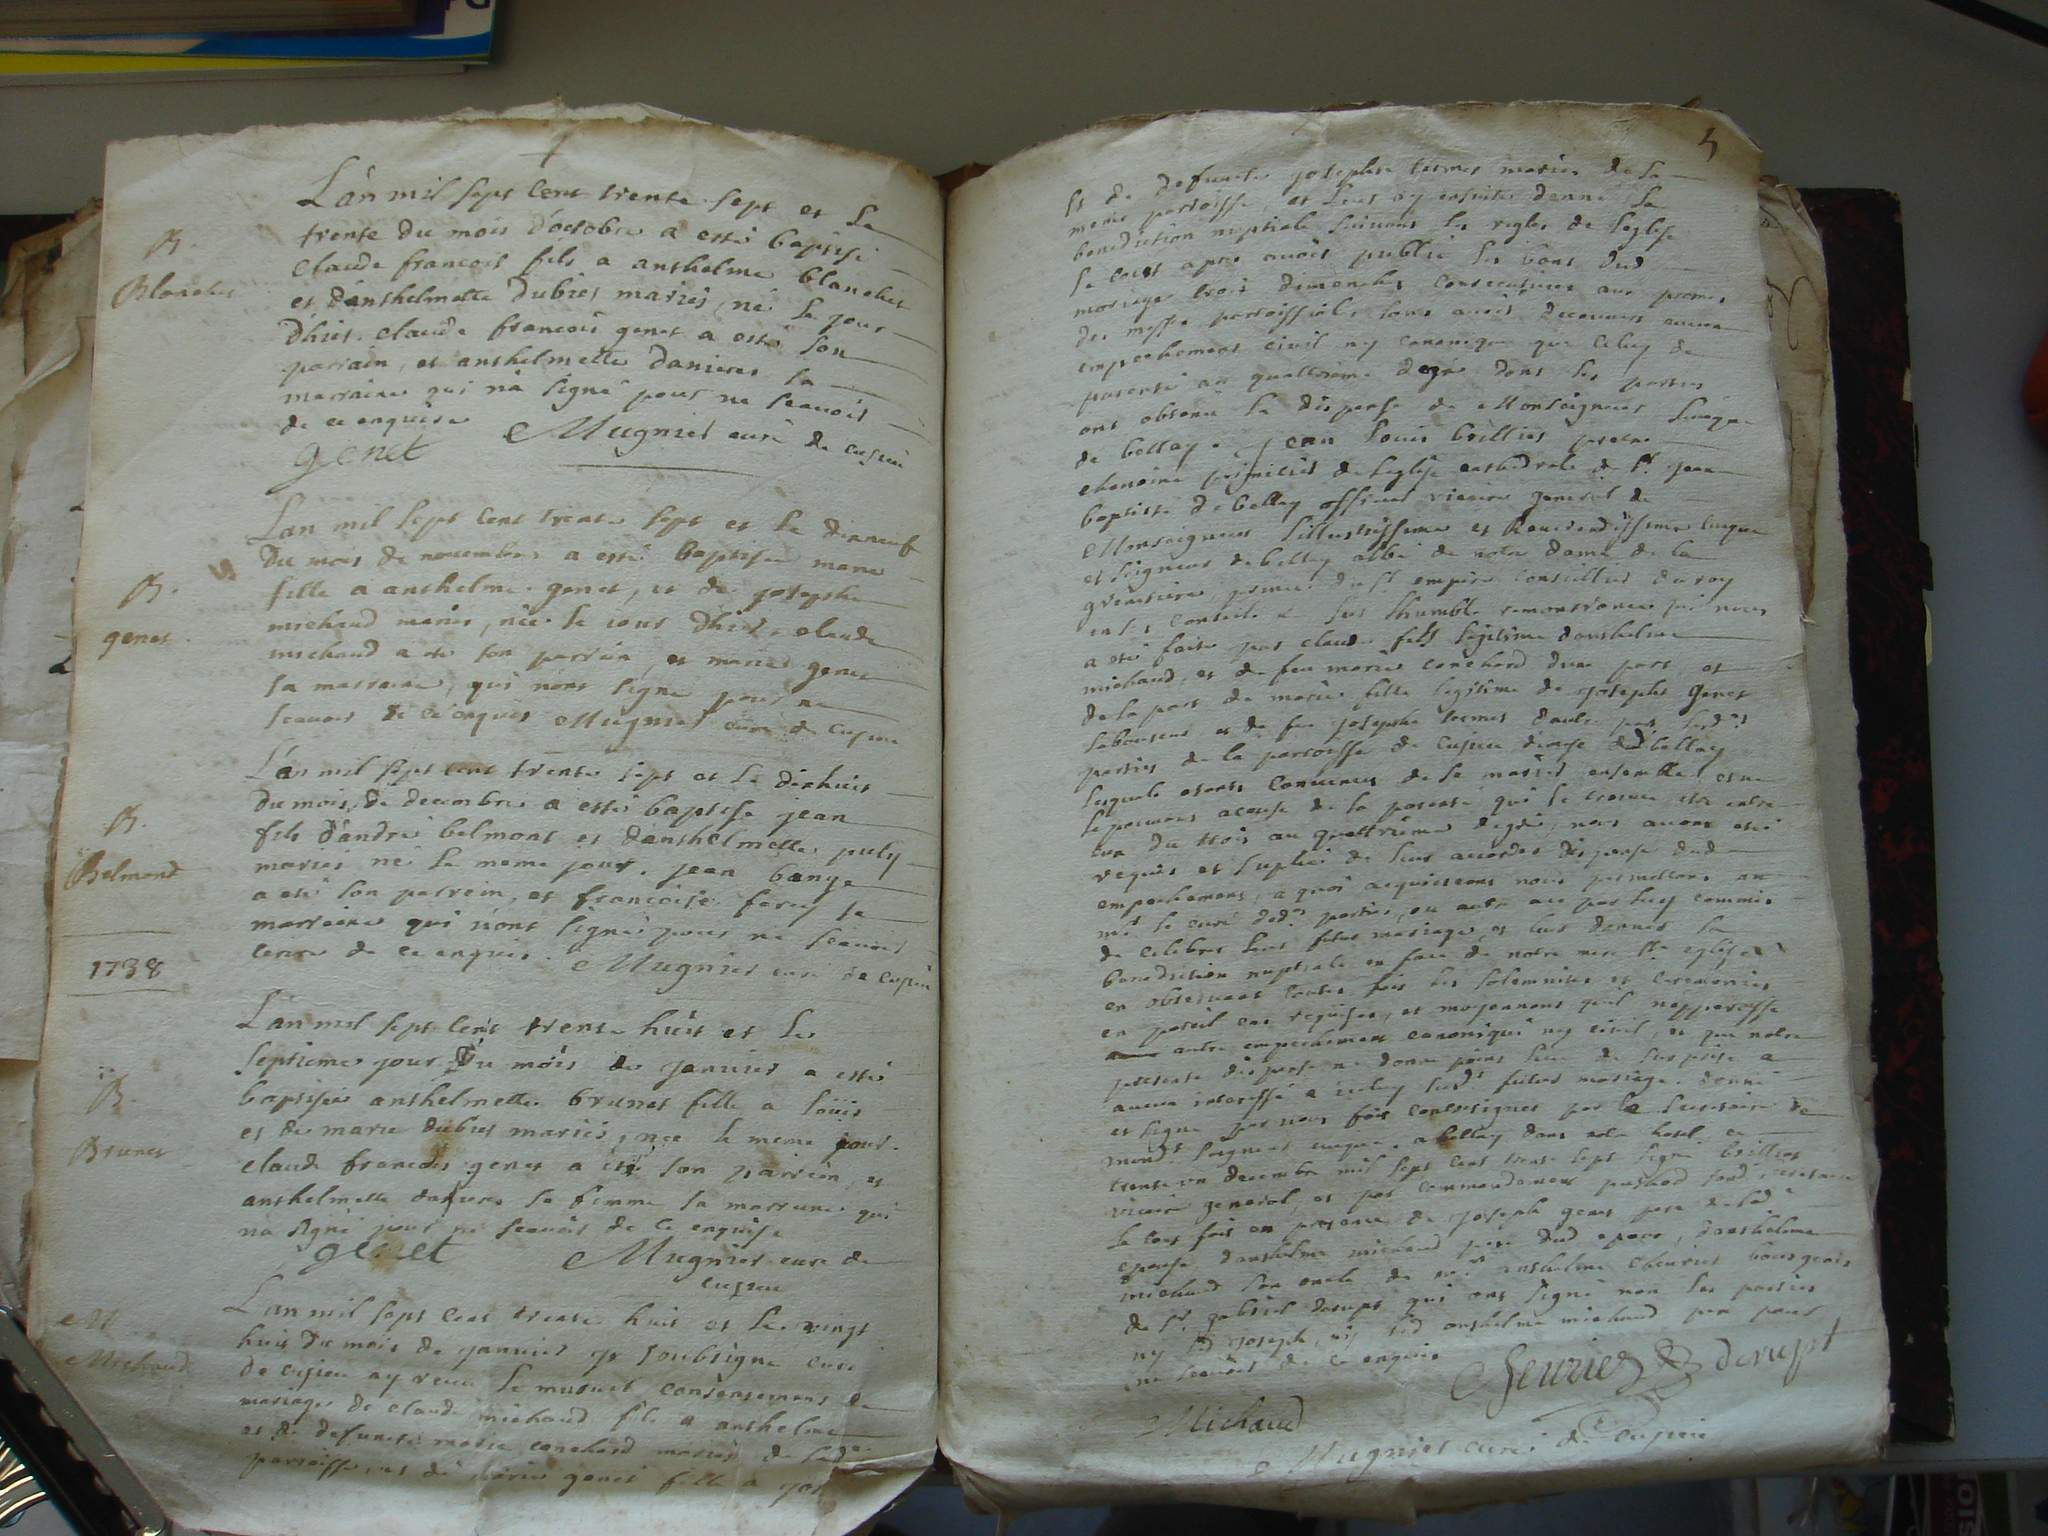 L'an mil sept cent trente sept et le
trente du mois d'octobre a esté baptisé
B.
Blanchet
claude francois fils a anthelme blanchet
et d'anthelmette dubiet mariés, né le jour
d'hier. claude francois genet a esté son
parrain, et anthelmette danieres sa
marraine qui n'a signé pour ne scavoir
de ce enquise
genet Mugnier curé de cusieu
L'an mil sept cent trente sept et le dixneuf
du mois de novembre a esté baptisée marie
B.
genet
fille a anthelme genet, et de josephe
michaud mariés, née le jour d'hier, claude
michaud a été son parrain, et marie genet
sa marraine, qui n'ont signé pour ne
scavoir de ce enquis Mugnier curé de cusieu
L'an mil sept cent trente sept et le dixhuit
du mois de decembre a esté baptisé jean
B.
Belmond
fils d'andré belmont et d'anthelmette puly
mariés né le meme jour. jean bange
a esté son parrein, et francoise ferey sa
marraine qui n'ont signé pour ne scavoir
de ce enquis. Mugnier curé de cusieu
1738
L'an mil sept cent trente huit et le
septieme jour du mois de janvier a esté
B.
Brunet
baptisée anthelmette brunet fille a louis
et de marie dubiet mariés, née le meme jour.
claude francois genet a été son parrein, et
anthelmette danieres sa femme la marraine qui
n'a signé pour ne scavoir de ce enquise
genet Mugnier curé de
cusieu
M
Michaud
L'an mil sept cent trente huit et le vingt
huit du mois de janvier je soubsigné curé
de cusieu ay receu le mutuel consentement de
mariage de claude michaud fils a anthelme
et de defunte marie conchard mariés de lad.
parroisse, et de marie genet fille a jos
5
et de defunte josephe termet mariés de la
meme parroisse, et leur ay ensuite donné la
benediction nuptiale suivant les regles de l'eglise
le tout apres avoir publié les bans dud
mariage trois dimanches consecutives aux prones
des messes parroissiales sans avoir decouvert aucun
empechement civil ny canonique que celuy de
parenté au quattrieme degré dont les parties
ont obtenu la dispense de Monseigneur l'evêque
de belley. Jean Louis brillier
chanoine de l'eglise cathedrale de St. jean
baptiste de belley official vicaire general de
Monseigneur l'illustrissime et Reverendissime eveque
et seigneur de belley abbé de notre dame de la
prince du St. empire conseiller du roy
en ses conseils sur l'humble remontrance qui nous
a été faite par claude fils legitime d'anthelme
michaud, et de feu marie conchard d'une part, et
de la part de marie fille legitime de joseph Genet
laboureur et de feu josephe termet d'autre part lesd.
parties de la parroisse de cusieu diocese de belley
lesquels etants convenus de se marier ensemble et ne
le pouvant a cause de la parenté qui se trouve etre entre
eux du trois au quattrieme degré, nous auroit esté
requis et supplié de leur accorder dispense dud
empechement, a quoi acquiescant nous permettons au
Mr. le curé desd. parties, ou autre par luy commis
de celebrer leur futur mariage, et leur donner la
benediction nuptiale en face de notre mere Ste eglise
en observant toutes fois les solemnités et ceremonies
en pareil cas requises, et moyennant qu'il n'apparoisse
autre empechement canonique ny civil, et que notre
presente dispense ne donne point lieu de surprise a
aucun interessé a iceluy sud. futur mariage. donné
et signé par nous fait contresigner par le secretaire de
mond. seigneur eveque. a belley dans notre hotel ce
trente un decembre mil sept cent trente sept signé brillier
vicaire general, et par commandement secretaire
le tout fait en presence de joseph genet pere de lad.
epouse d'anthelme michaud pere dud epoux, d'anthelme
michaud son oncle de Mr. anthelme cheurier bourgeois
de Sr. gabriel derupt qui ont signé non les parties
ny led joseph, ny led anthelme michaud pere pour
ne scavoir de ce enquis
Cheurier derupt
Michaud
Mugnier curé de cusieu